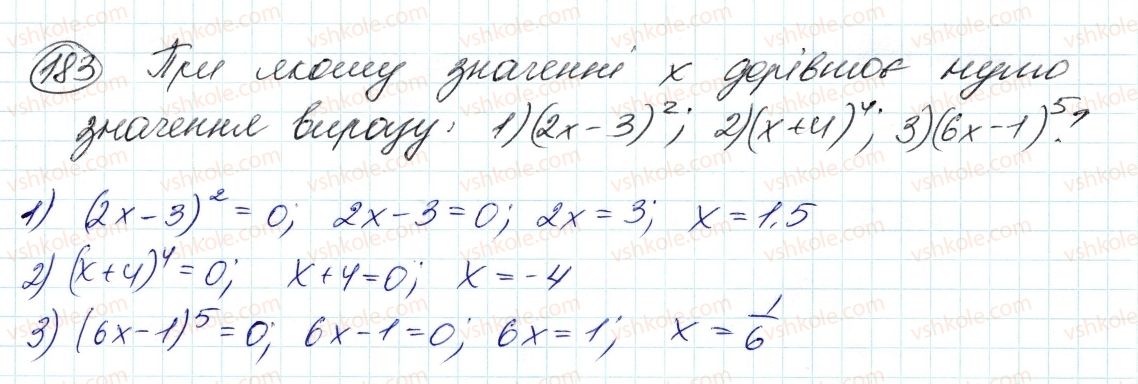 183 При якому значенні x дорівнює нулю
значення виразу: 1) (2x-3)²; 2) (x+4)⁴; 3) (6x-1)⁵?
1) (2x-3)² = 0; 2x-3=0; 2x=3; x=1,5
2) (x+4)⁴=0; x+4=0; x=-4
3) (6x-1)⁵=0; 6x-1=0; 6x=1; x=1/6